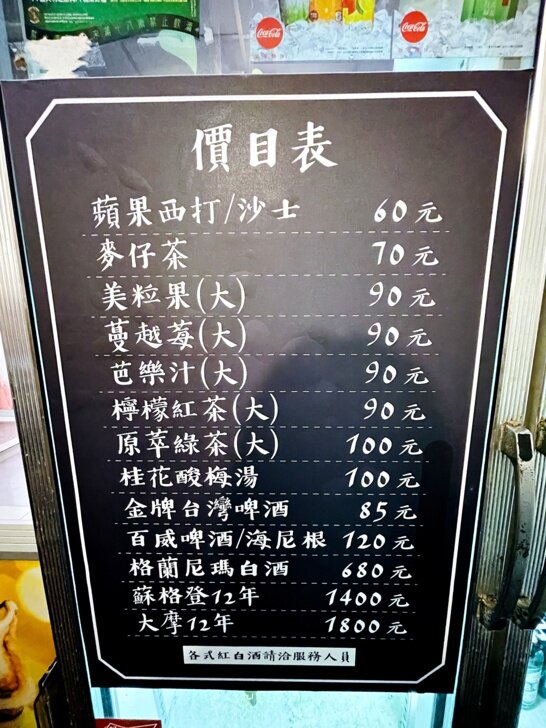 Coca-Cola
Coca-Cola
價目表
蘋果西打/沙士 60元
麥仔茶 70元
美粒果(大) 90元
蔓越莓(大) 90元
芭樂汁(大) 90元
檸檬紅茶(大) 90元
原萃綠茶(大) 100元
桂花酸梅湯 100元
金牌台灣啤酒 85元
百威啤酒/海尼根 120元
格蘭尼瑪白酒 680元
蘇格登12年 1400元
大摩12年 1800元
各式紅白酒請洽服務人員